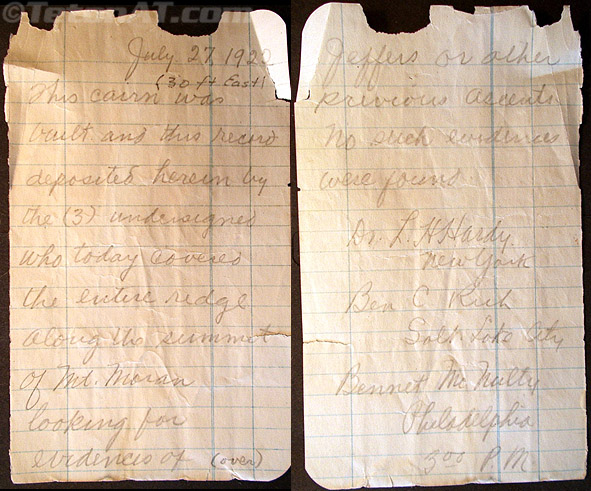 © TetonAT.com
July 27 1922
(30 ft East)
This cairn was
built and this record
deposited herein by
the (3) undersigned
who today covered
the entire ridge
along the summit
of Mt. Moran
looking for
evidences of (over)
Jeffers or other
previous ascents
No such evidences
were found
Dr. L. H Hardy
New York
Ben C Rich
Salt Lake City
Bennet McNulty
Philadelphia
3 00 P.M.